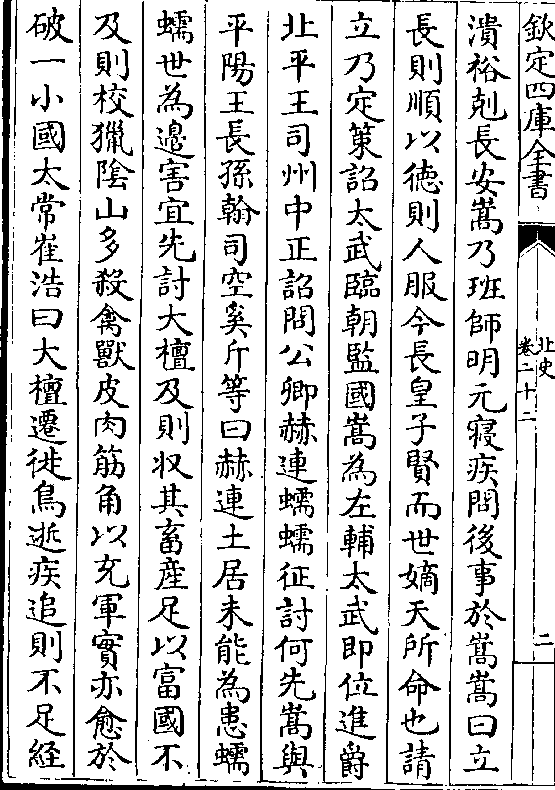 欽定四庫全書
北史
卷二十二
二
潰裕剋長安嵩乃班師明元寢疾問後事於嵩嵩曰立
長則順以德則人服今長皇子賢而世嫡天所命也請
立乃定策詔太武臨朝監國嵩為左輔太武即位進爵
北平王司州中正詔問公卿赫連蠕蠕征討何先嵩與
平陽王長孫翰司空奚斤等曰赫連土居未能為患蠕
蠕世為邉害宜先討大檀及則収其畜産足以富國不
及則校獵隂山多殺禽獸皮肉筋角以充軍實亦愈於
破一小國太常崔浩曰大檀遷徙鳥逝疾追則不足經